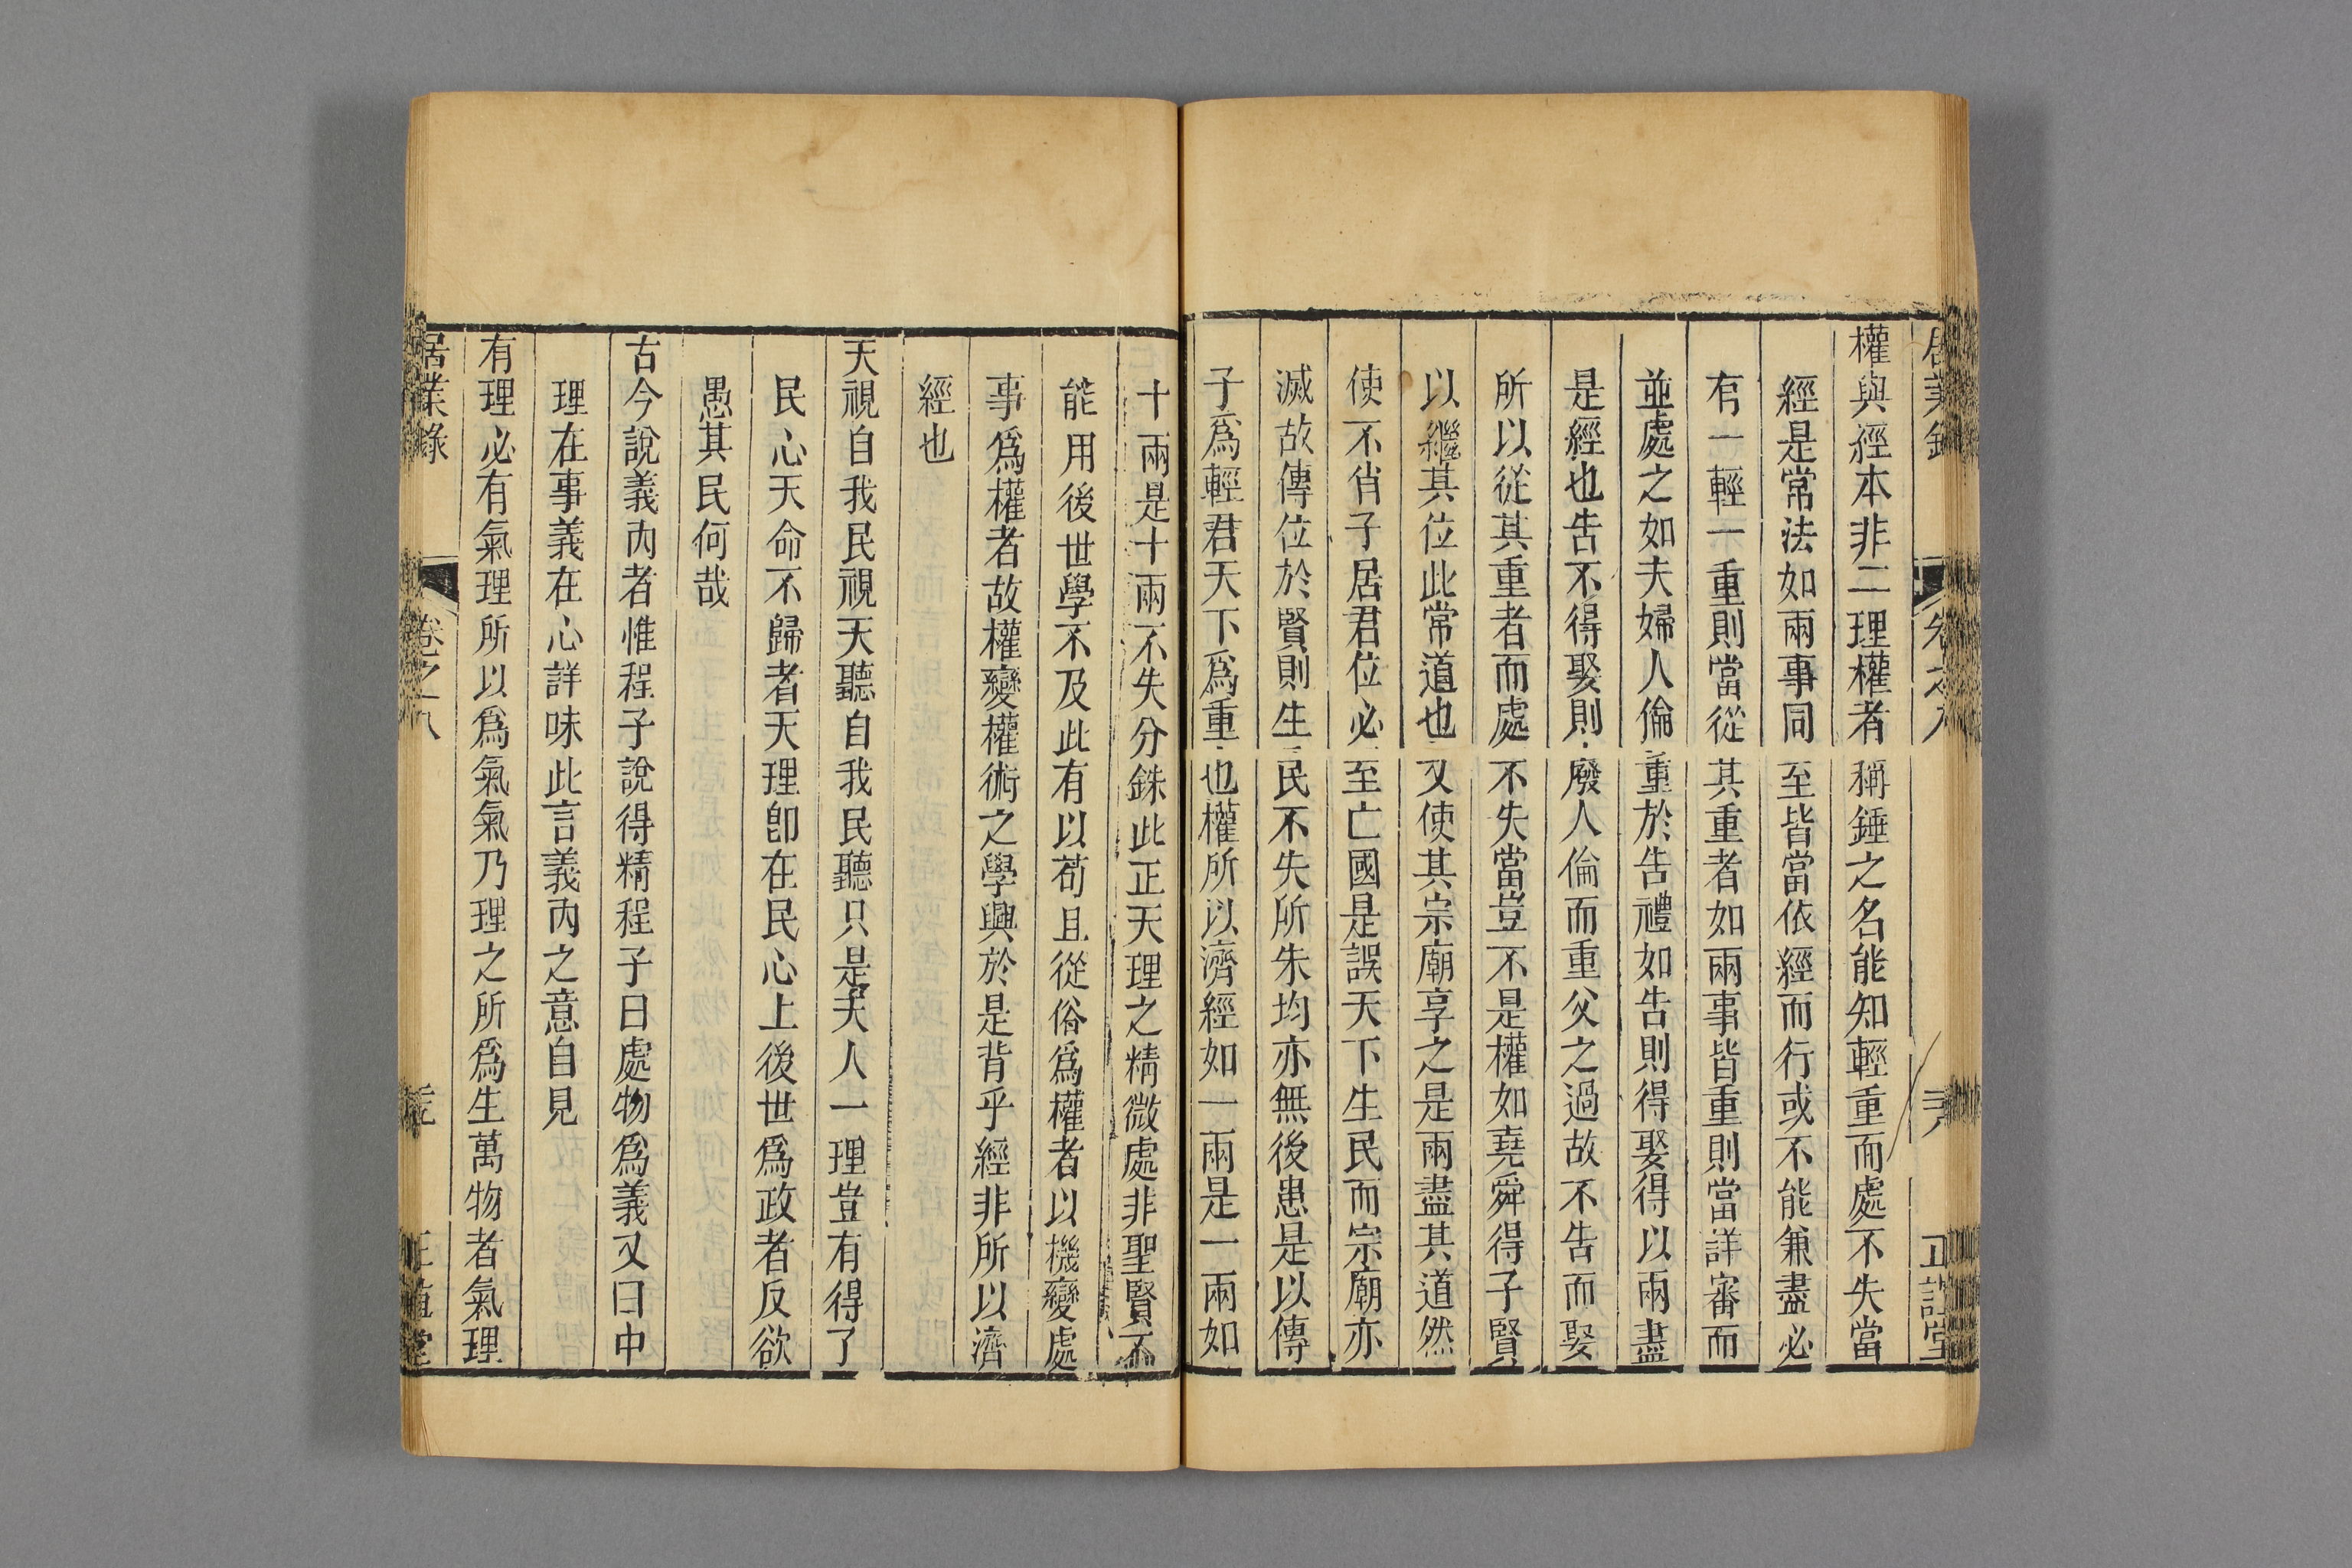 權與經本非二理權者稱錘之名能知輕重而處不失當
經是常法如兩事同至皆當依經而行或不能兼盡必
有一輕一重則當從其重者如兩事皆重則當詳審而
並處之如夫婦人倫重於告禮如告則得娶得以兩盡
是經也告不得娶則廢人倫而重父之過故不告而娶
所以從其重者而處不失當豈不是權如堯舜得子賢
以繼其位此常道也又使其宗廟享之是兩盡其道然
使不肖子居君位必至亡國是誤天下生民而宗廟亦
滅故傳位於賢則生民不失所朱均亦無後患是以傳
子爲輕君天下爲重也權所以濟經如一兩是一兩如
十兩是十兩不失分銖此正天理之精微處非聖賢不
能用後世學不及此有以苟且從俗爲權者以機變處
事爲權者故權變權術之學興於是背乎經非所以濟
經也
天視自我民視天聽自我民聽只是天人一理豈有得了
民心天命不歸者天理卽在民心上後世爲政者反欲
愚其民何哉
古今說義內者惟程子說得精程子曰處物爲義又曰中
理在事義在心詳味此言義內之意自見
有理必有氣理所以爲氣氣乃理之所爲生萬物者氣理
居業錄 卷之八